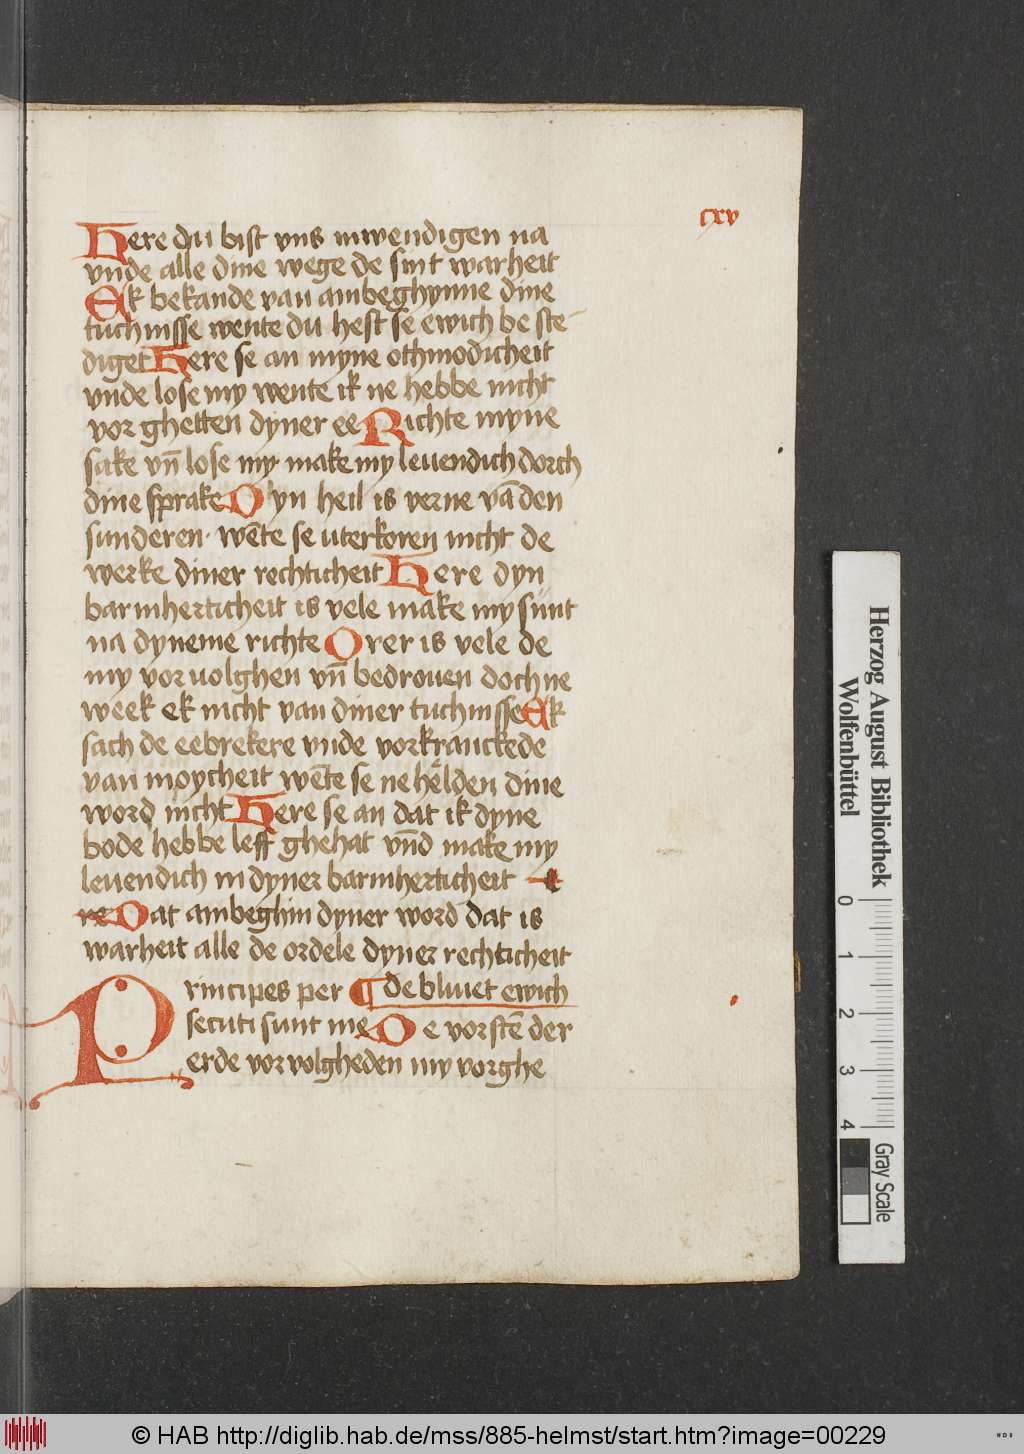 cxv
Here du bist vns inwendigen na
vnde alle dine wege de sint warheit
Ek bekande van ambeghynne dine
tuchnisse wente du hest se ewich be ste-
diget Here se an myne othmodicheit
vnde lose my wente ik ne hebbe nicht
vor ghetten dyner ee Richte myne
sake vn̄ lose my· make my leuendich dorch
dine sprake Dyn heil is verne vā den
sunderen· wēte se uterkoren nicht de
werke diner rechticheit Here dyn
barmherticheit is vele make my sunt
na dyneme richte Orer is vele de
my vor uolghen vn̄ bedrouen doch ne
week ek nicht van diner tuchnisse Ek
sach de eebrekere vnde vorkranckede
van moycheit wēte se ne helden dine
word nicht Here se an dat ik dyne
bode hebbe leff ghehat vn̄d make my
leuendich in dyner barmherticheit
re Dat ambeghin dyner word dat is
warheit alle de ordele dyner rechticheit
Principes per de bliuet ewich
secuti sunt me De vorstē der
erde vor volgheden my vorghe
Herzog August Bibliothek
Wolfenbüttel
0 1 2 3 4
Gray Scale
© HAB http://diglib.hab.de/mss/885-helmst/start.htm?image=00229